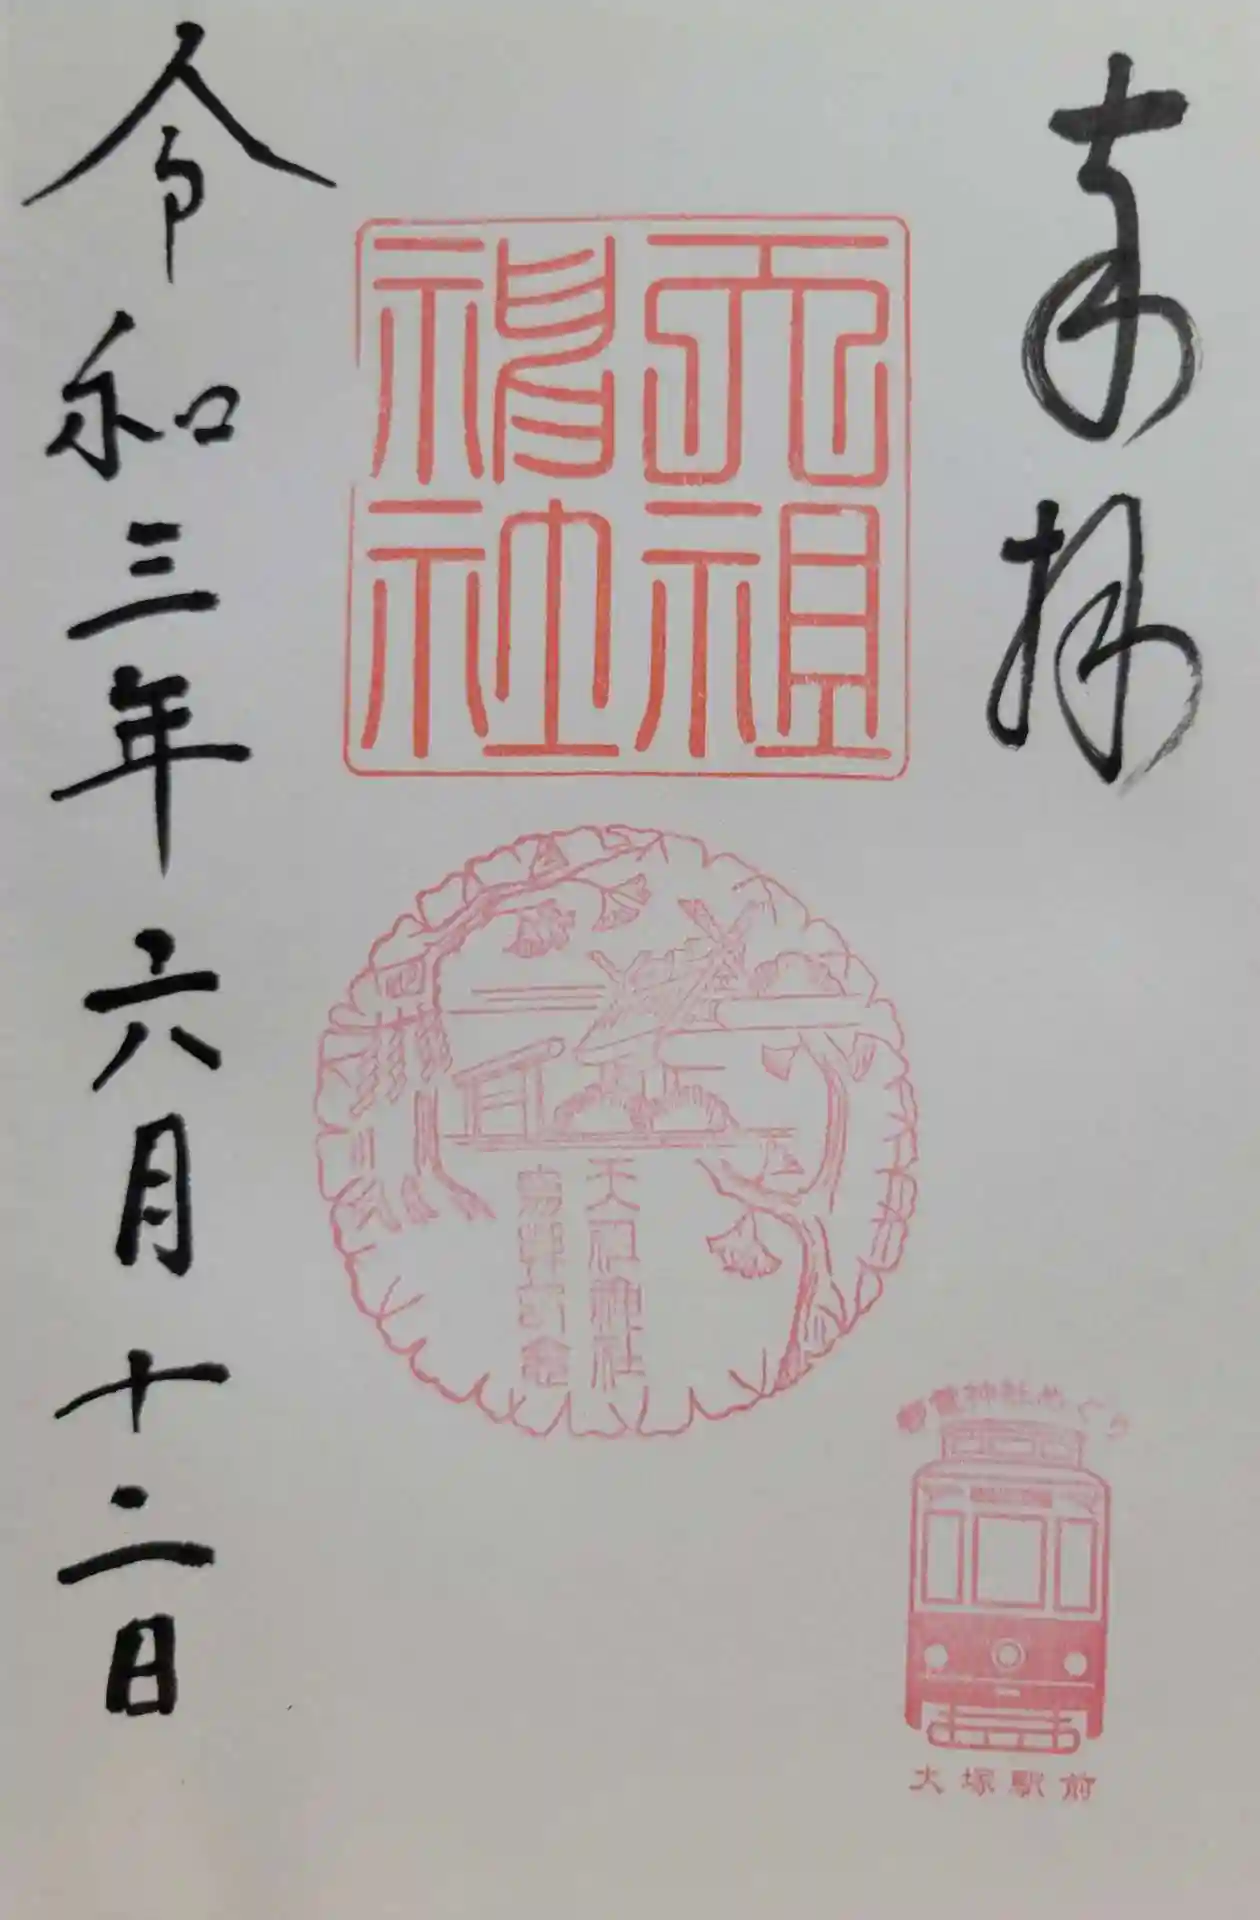 奉拝
天祖
神社
天祖神社
參拝記念
神社めぐり
大塚駅前
令和三年六月十二日